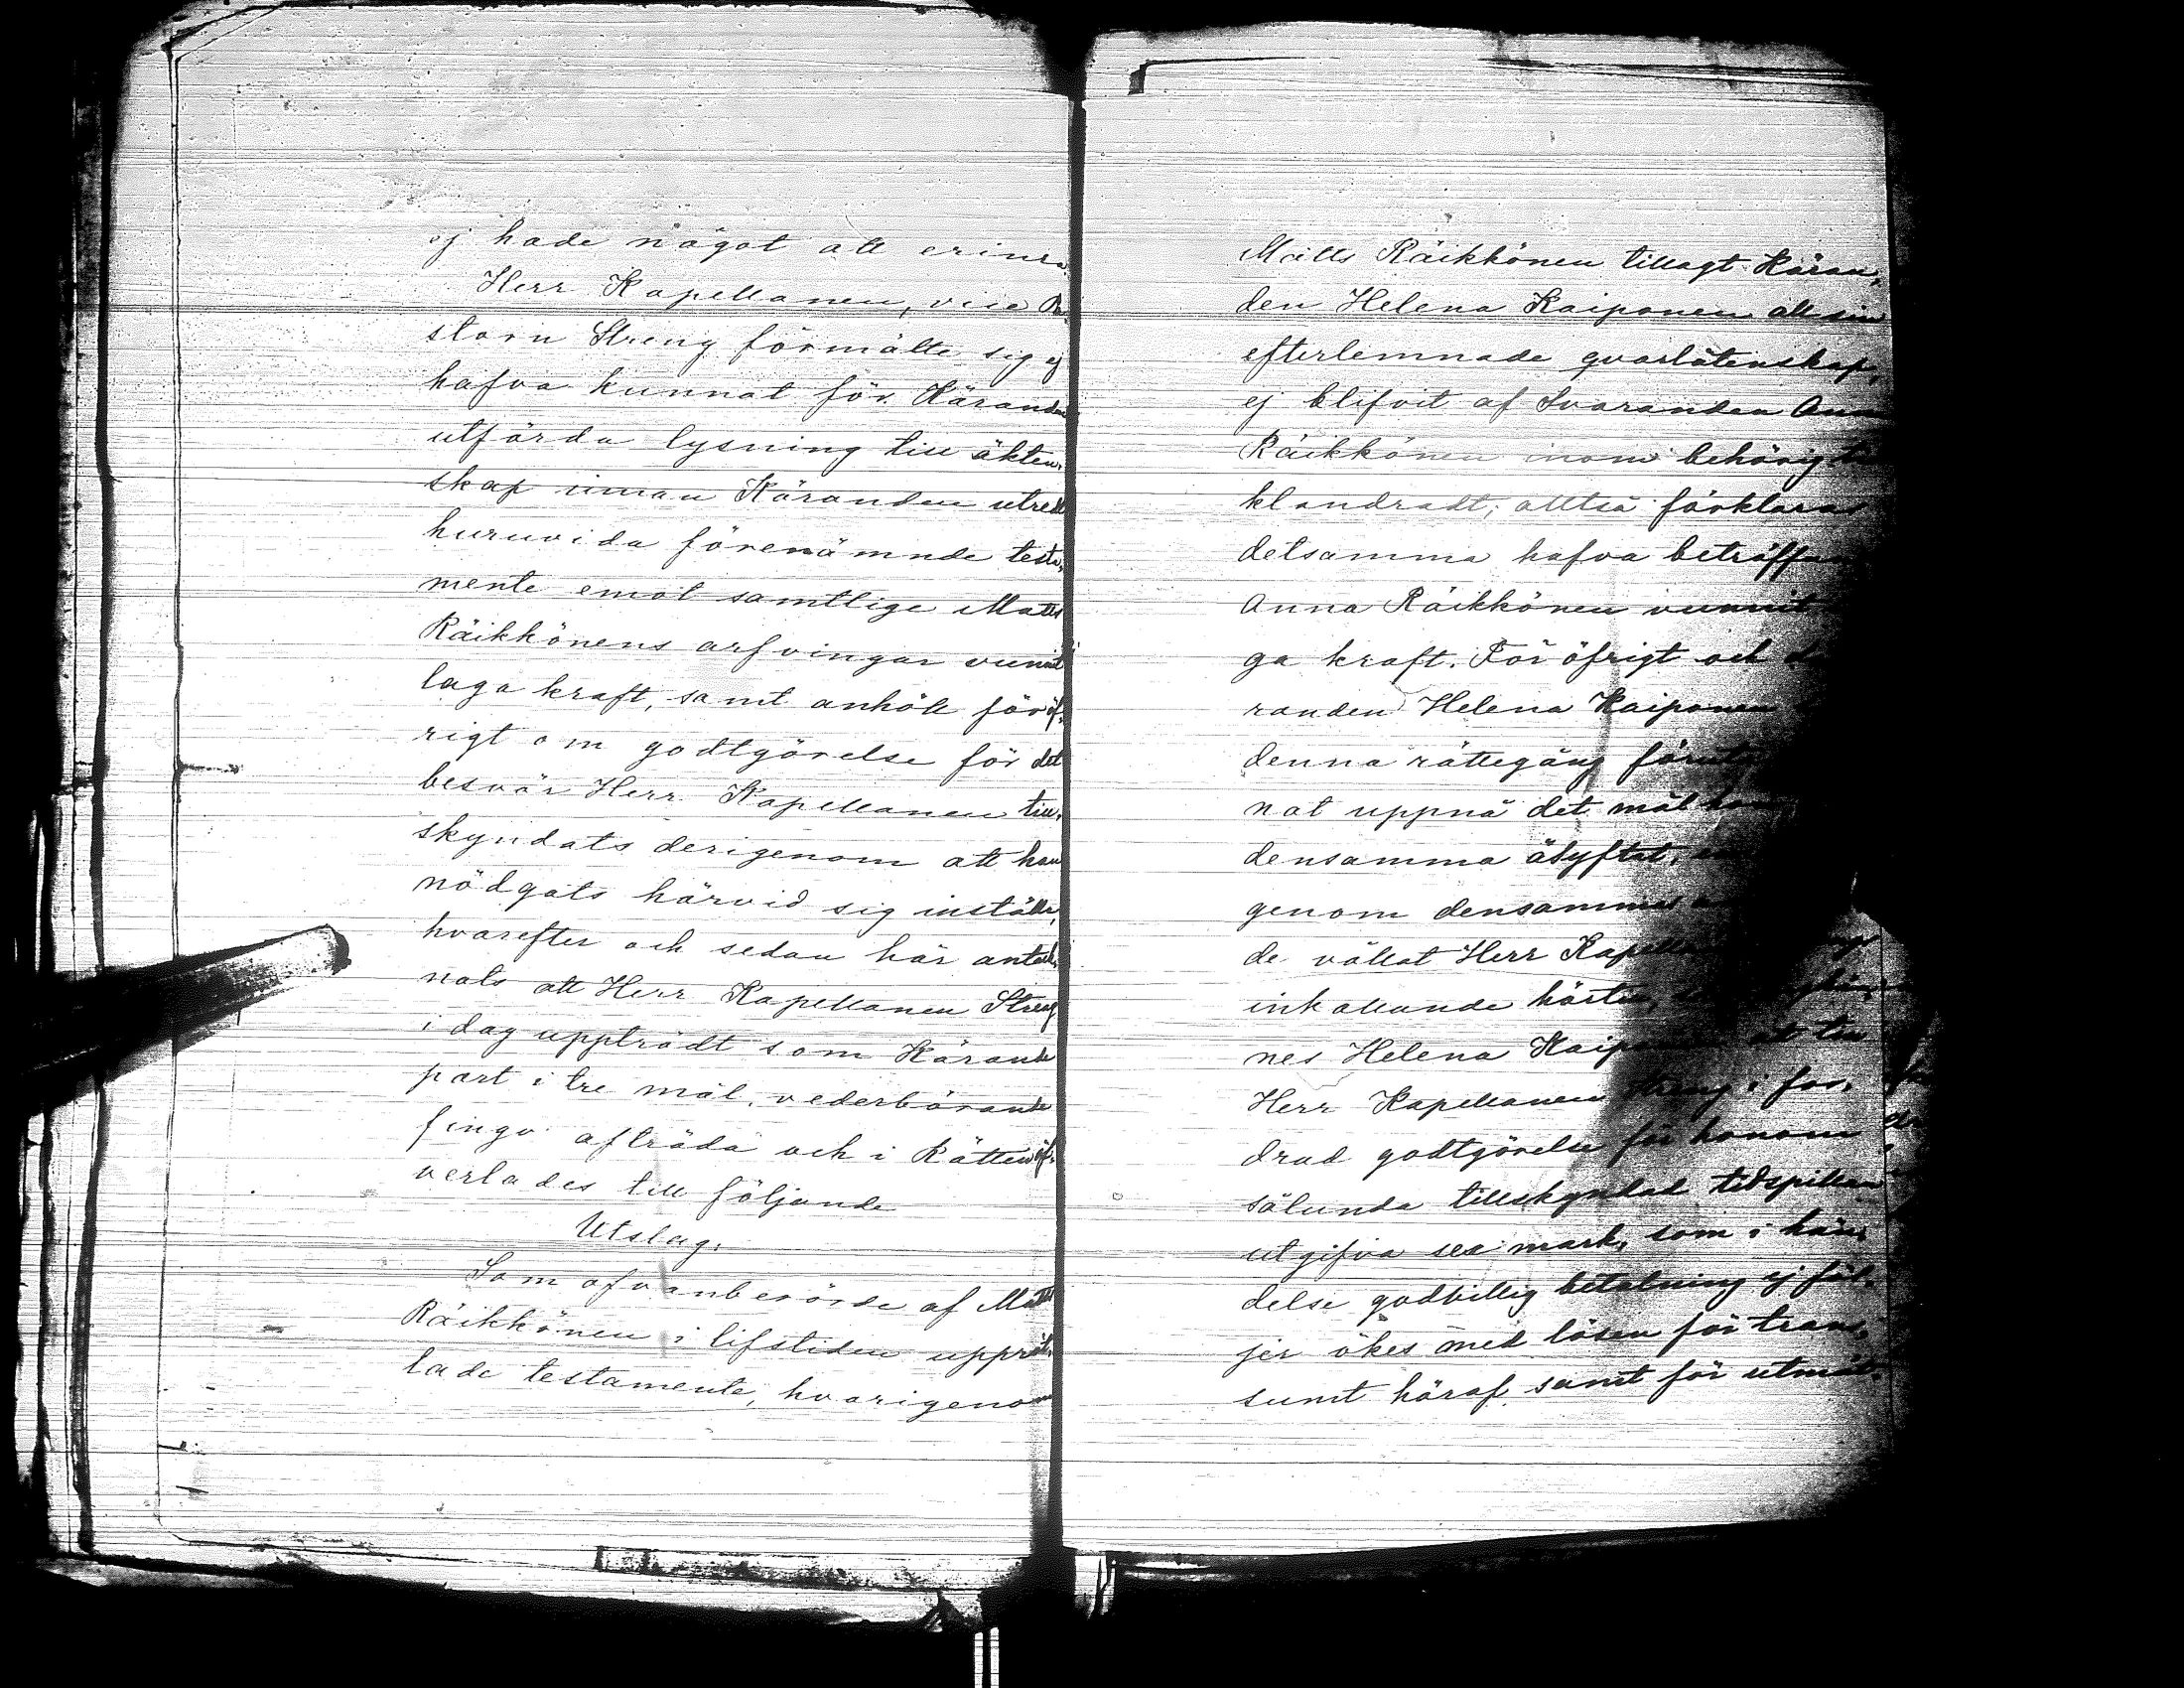 ej hade något att erinra
Herr Kapellanen, vice Pa-
storn Streng förmälte sig ej
hafva kunnat för Käranden
utfärda lysning till äkten-
skap innan Käranden utredt
huruvida förenämnde testa-
mente emot samtlige Matts
Räikkönens arfvingar vunnit
laga kraft, samt anhöll för öf-
rigt om godtgörelse för det
besvär Herr Kapellanen till-
skyndats derigenom att han
nödgats härvid sig inställa,
hvarefter och sedan här anteck-
nats att Herr Kapellanen Streng
i dag uppträdt som Kärande
part i tre mål, vederbörande
fingo afträda och i Rätten öf-
verlades till följande
Utslag:
Som ofvanberörde af Matts
Räikkönen i lifstiden upprät-
tade testamente, hvarigenom
Matts Räikkönen tillagt Käran-
den Helena Kaiponen all sin
efterlemnade qvarlåtenskap,
ej blifvit af Svaranden Anna
Räikkönen inom behörig tid
klandradt, alltså förklaras
detsamma hafva beträffande
Anna Räikkönen vunnit
ga kraft. För öfrigt och
randen Helena Kaiponen
denna rättegång
nat uppnå det mål hon
densamma åsyftat,
genom densammas
de vållat Herr
inkallande hörts,
nes Helena att till
Herr Kapellanen Streng i for-
drad godtgörelse för honom
sålunda tillskyndad tidspillan
utgifva sex mark, som i hän-
delse godvillig betalning ej föl-
jer ökes med lösen för trans-
sumt häraf samt för utmät-